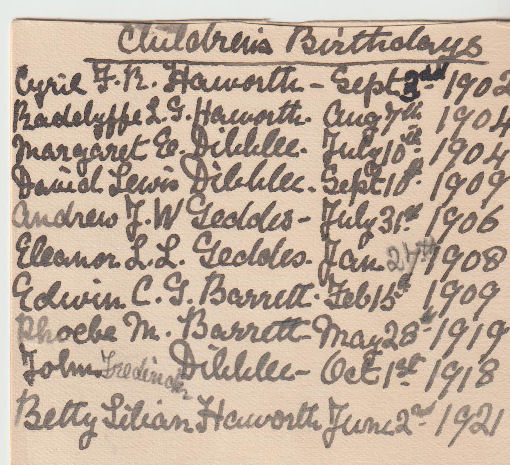 Children's Birthdays
Cyril F. R. Haworth - Sept 2nd 1902
Radclyffe L. G. Haworth. Aug 7th 1904
Margaret E. Dibblee. July 10th 1904
David Lewis Dibblee. Sept 10th 1909
Andrew J. W Geddes - July 31st 1906
Eleanor L. L. Geddes. Jan 27th 1908
Edwin C. G. Barrett. Feb 15th 1909
Phoebe M. Barrett - May 28th 1919
John Frederick Dibblee - Oct 1st 1918
Betty Lilian Haworth June 2nd 1921